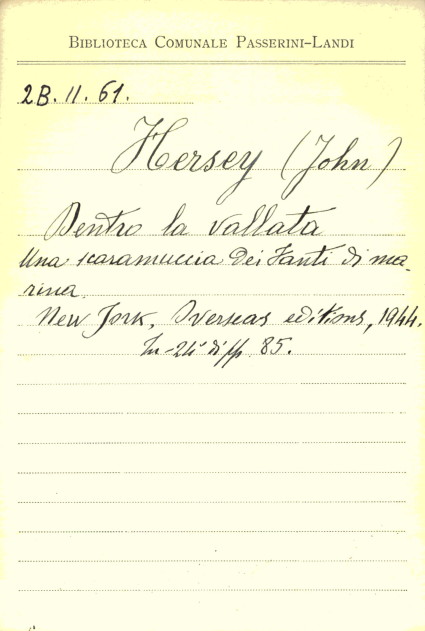 BIBLIOTECA COMUNALE PASSERINI-LANDI
2B. II. 61.
Hersey (John)
Dentro la vallata
Una scaramuccia dei Fanti di ma-
rina.
New Jork, Overseas editions, 1944.
In-24° di pp. 85.